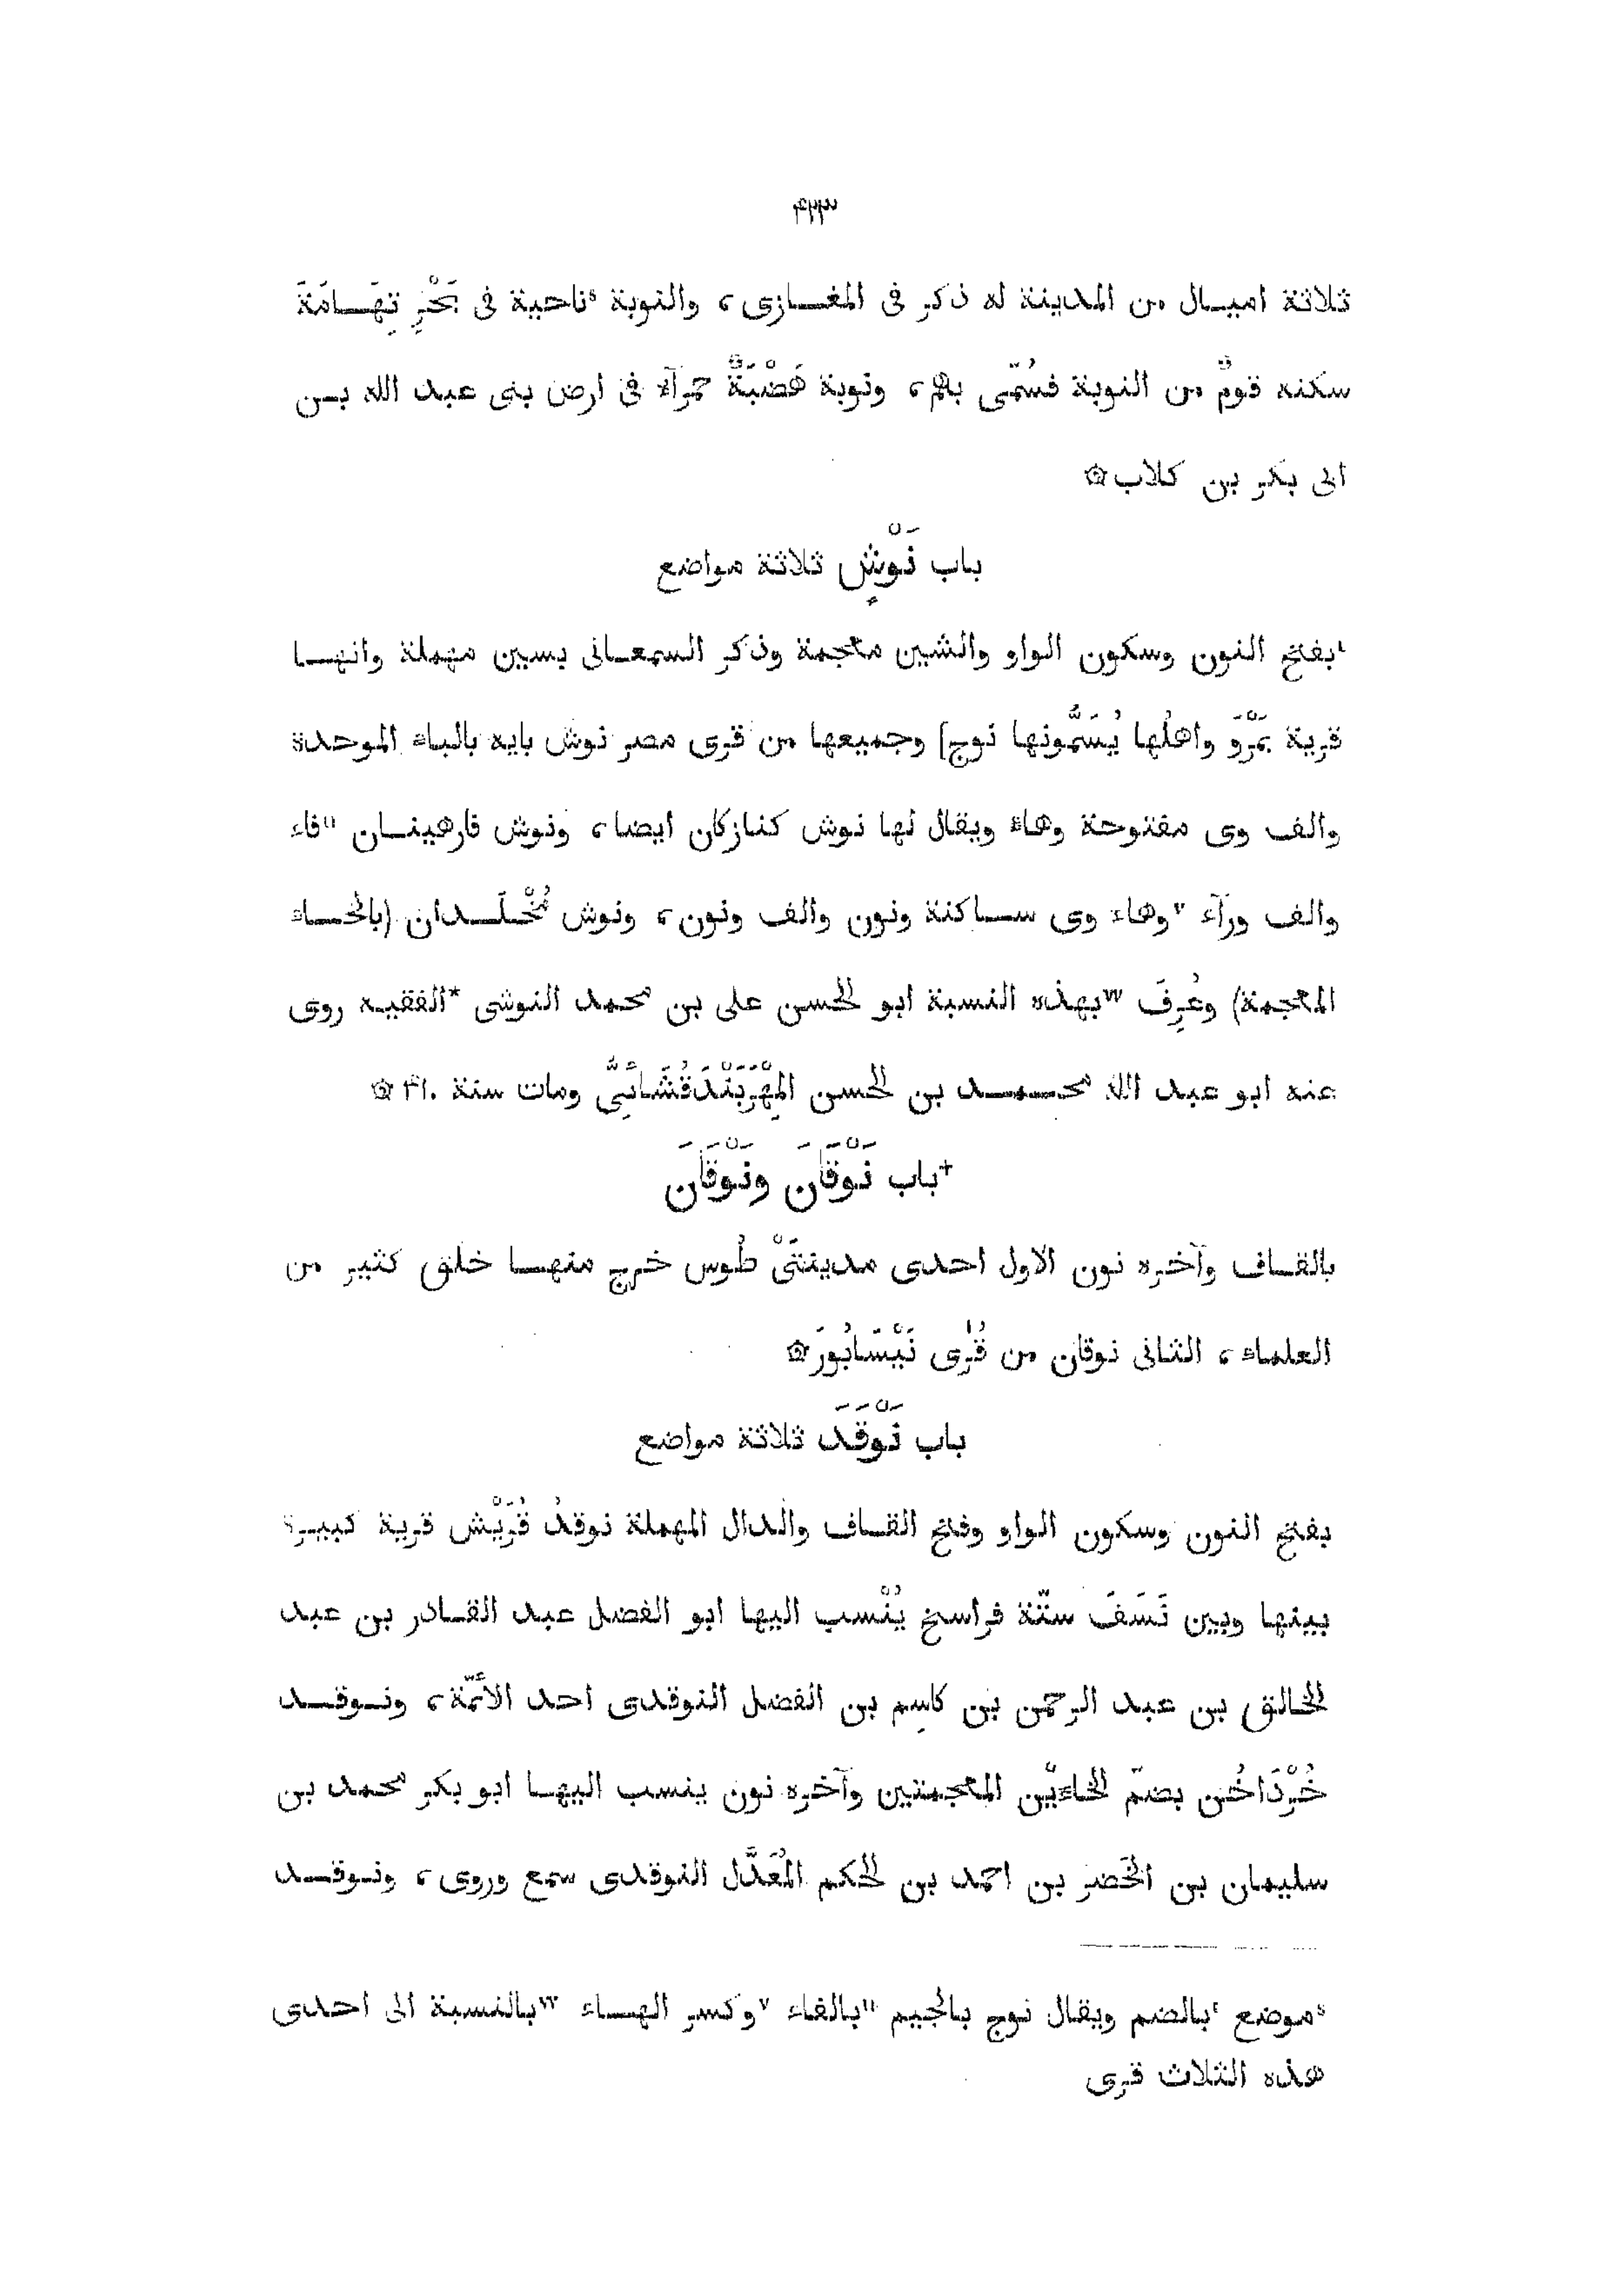 ۴۲۳
ثلاثة اميـال من المدينة له ذكر فى المغـازى، والنوبة ⁵ناحية فى بَحْرِ تِهَـامَةَ
سكنه قومٌ من النوبة فسُمّى بهم، ونوبة هَضْبَةٌ حمرآء فى ارض بنى عبد الله بـن
ابى بكر بن كلاب ۞
باب نَوْشٍ ثلاثة مواضع
¹بفتح النون وسكون الواو والشين معجمة وذكر السمعـانى بسين مهملة وانهـا
قرية بمَرْوَ واهلُها يُسَمُّونها نوج] وجميعها من قرى مصر نوش بايه بالباء الموحدة
والف وى مفتوحة وهاء ويقال لها نوش كنازكان ايضا، ونوش فارهينـان ¹¹فاء
والف ورآء ⁷وهاء وى سـاكنة ونون والف ونون، ونوش مُخْلَـدان (بالخـاء
المعجمة) وعُرِفَ ʷبهذه النسبة ابو الحسن على بن محمد النوشى *الفقيـه روى
عنه ابو عبد الله محـمـد بن الحسن المِهْرَبَنْدَقُشَائِىُّ ومات سنة ۴۱۰ ۞
†باب نَوْقَانَ ونَوْقَانَ
بالقـاف وآخره نون الاول احدى مدينتَىْ طُوس خرج منهـا خلق كثير من
العلماء، الثانى نوقان من قُرَى نَيْسَابُورَ ۞
باب نَوْقَدَ ثلاثة مواضع
بفتح النون وسكون الواو وفتح القـاف والدال المهملة نوقدُ قُرَيْش قرية كبيـرة
بينها وبين نَسَفَ ستّة فراسخ يُنْسب اليها ابو الفضل عبد القـادر بن عبد
الخـالق بن عبد الرحمن بن كاسِم بن الفضل النوقدى احد الأئمّة، ونـوقـد
خُرْدَاخُن بضمّ الخاءَيْن المعجمتين وآخره نون ينسب اليهـا ابو بكر محمد بن
سليمان بن الخَضر بن احمد بن الحكم المُعَدَّل النوقدى سمع وروى، ونـوقـد
⁵موضع ¹بالضم ويقال نوج بالجيم ¹¹بالفاء ⁷وكسر الهـاء ʷبالنسبة الى احدى
هذه الثلاث قرى